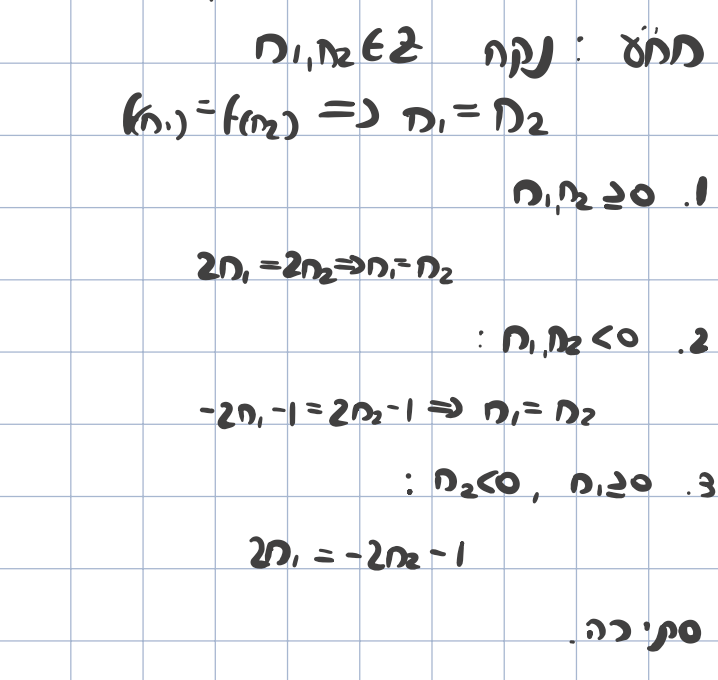 חח"ע : נקח n₁,n₂ ∈ Z
f(n₁) = f(n₂) => n₁ = n₂
1. n₁,n₂ ≥ 0
2n₁ = 2n₂ => n₁ = n₂
2. n₁,n₂ < 0 :
-2n₁ -1 = 2n₂ -1 => n₁ = n₂
3. n₁ ≥ 0 , n₂ < 0 :
2n₁ = -2n₂ -1
סתירה.